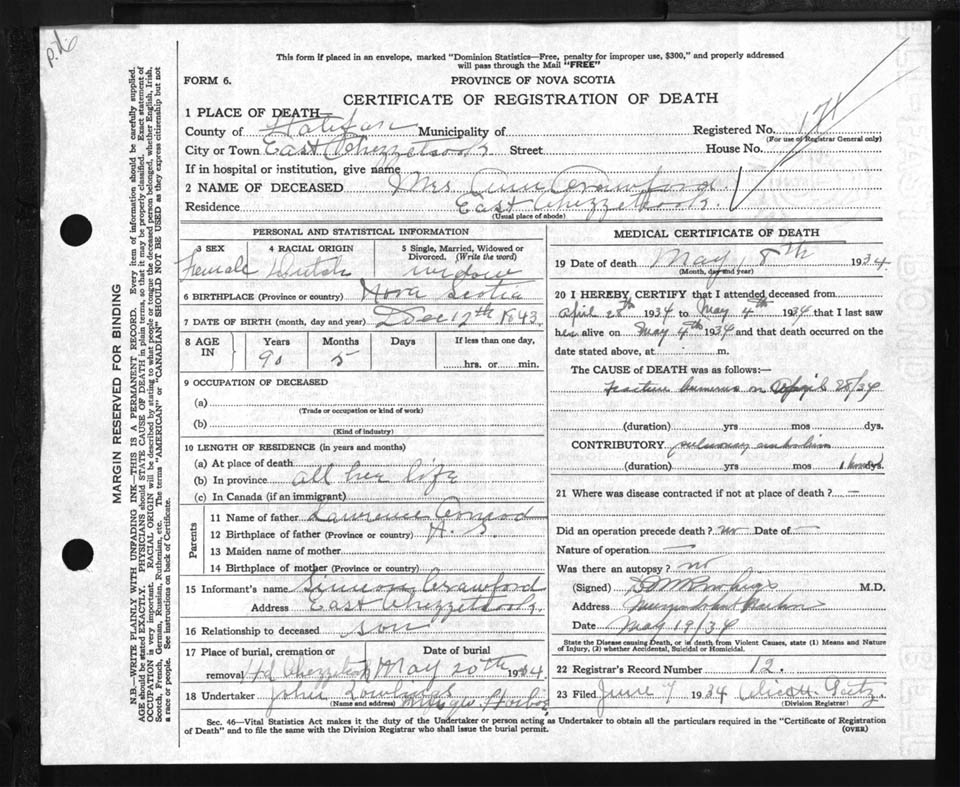 This form if placed in an envelope, marked "Dominion Statistics—Free, penalty for improper use, $300," and properly addressed
will pass through the Mail "FREE"
FORM 6.
PROVINCE OF NOVA SCOTIA
CERTIFICATE OF REGISTRATION OF DEATH
1 PLACE OF DEATH
County of Halifax Municipality of
Registered No. 171
(For use of Registrar General only)
City or Town East Chezzetcook Street
House No.
If in hospital or institution, give name
2 NAME OF DECEASED Mrs Ann Crawford
Residence East Chezzetcook.
(Usual place of abode)
PERSONAL AND STATISTICAL INFORMATION
3 SEX
Female
4 RACIAL ORIGIN
Dutch
5 Single, Married, Widowed or Divorced. (Write the word)
widow
6 BIRTHPLACE (Province or country) Nova Scotia
7 DATE OF BIRTH (month, day and year) Dec 12th 1843.
8 AGE IN
Years Months Days If less than one day,
90 5
hrs. or min.
9 OCCUPATION OF DECEASED
(a)
(Trade or occupation or kind of work)
(b)
(Kind of industry)
10 LENGTH OF RESIDENCE (in years and months)
(a) At place of death
(b) In province all her life
(c) In Canada (if an immigrant)
Parents
11 Name of father Lawrence Conrod
12 Birthplace of father (Province or country)
13 Maiden name of mother
14 Birthplace of mother (Province or country)
15 Informant's name Simeon Crawford
Address East Chezzetcook.
16 Relationship to deceased son
17 Place of burial, cremation or
removal Hd Chezzetcook May 20th 1934
18 Undertaker John
(Name and address)
Harbor
MEDICAL CERTIFICATE OF DEATH
19 Date of death May 18th 1934
(Month, day and year)
20 I HEREBY CERTIFY that I attended deceased from
April 28th 1934 to May 4th 1934 that I last saw
her alive on May 4th 1934 and that death occurred on the
date stated above, at m.
The CAUSE OF DEATH was as follows:—
Fracture humerus on April 28/34
(duration) yrs mos dys.
CONTRIBUTORY pulmonary embolism
(duration) yrs mos 1 dys.
21 Where was disease contracted if not at place of death? —
Did an operation precede death? no Date of —
Nature of operation —
Was there an autopsy? no
(Signed) M.D.
Address Musquodoboit Harbor
Date May 19/34
State the Disease causing Death, or in death from Violent Causes, state (1) Means and Nature
of Injury, (2) whether Accidental, Suicidal or Homicidal.
22 Registrar's Record Number 12.
23 Filed June 7 1934
(Division Registrar)
Sec. 46—Vital Statistics Act makes it the duty of the Undertaker or person acting as Undertaker to obtain all the particulars required in the "Certificate of Registration
of Death" and to file the same with the Division Registrar who shall issue the burial permit.
(OVER)
MARGIN RESERVED FOR BINDING
N.B.—WRITE PLAINLY WITH UNFADING INK—THIS IS A PERMANENT RECORD. Every item of information should be carefully supplied.
AGE should be stated EXACTLY. PHYSICIANS should STATE CAUSE OF DEATH in plain terms, so that it may be properly classified. Exact statement of
OCCUPATION is very important. RACIAL ORIGIN will be described by stating to what people or tongue the deceased person belonged, whether English, Irish,
Scotch, French, German, Russian, Ruthenian, etc. The terms "AMERICAN" or "CANADIAN" SHOULD NOT BE USED as they express citizenship but not
a race or people. See instructions on back of Certificate.